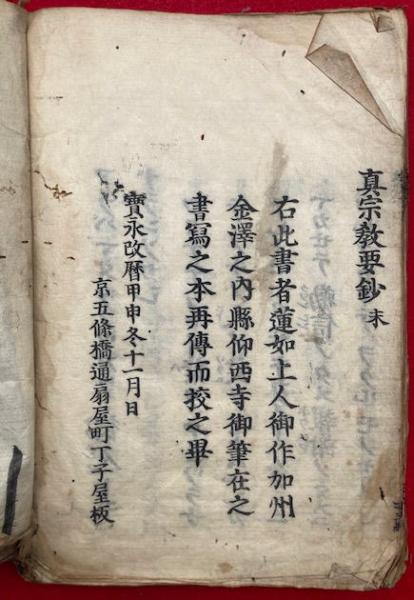 真宗教要鈔 末
右此書者蓮如上人御作加州
金澤之内縣仰西寺御筆在之
書寫之本再傳而挍之畢
寶永改曆甲申冬十一月日
京五條橋通扇屋町丁子屋板